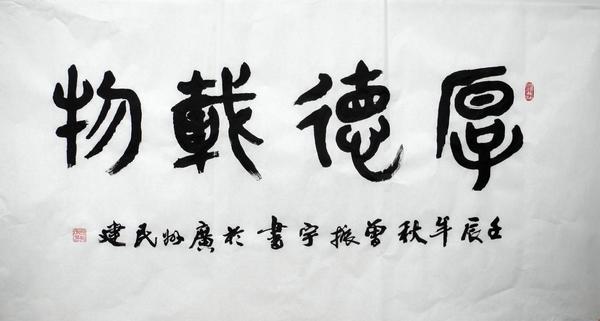 厚德載物
壬辰年秋曾振宇書於廣州民建